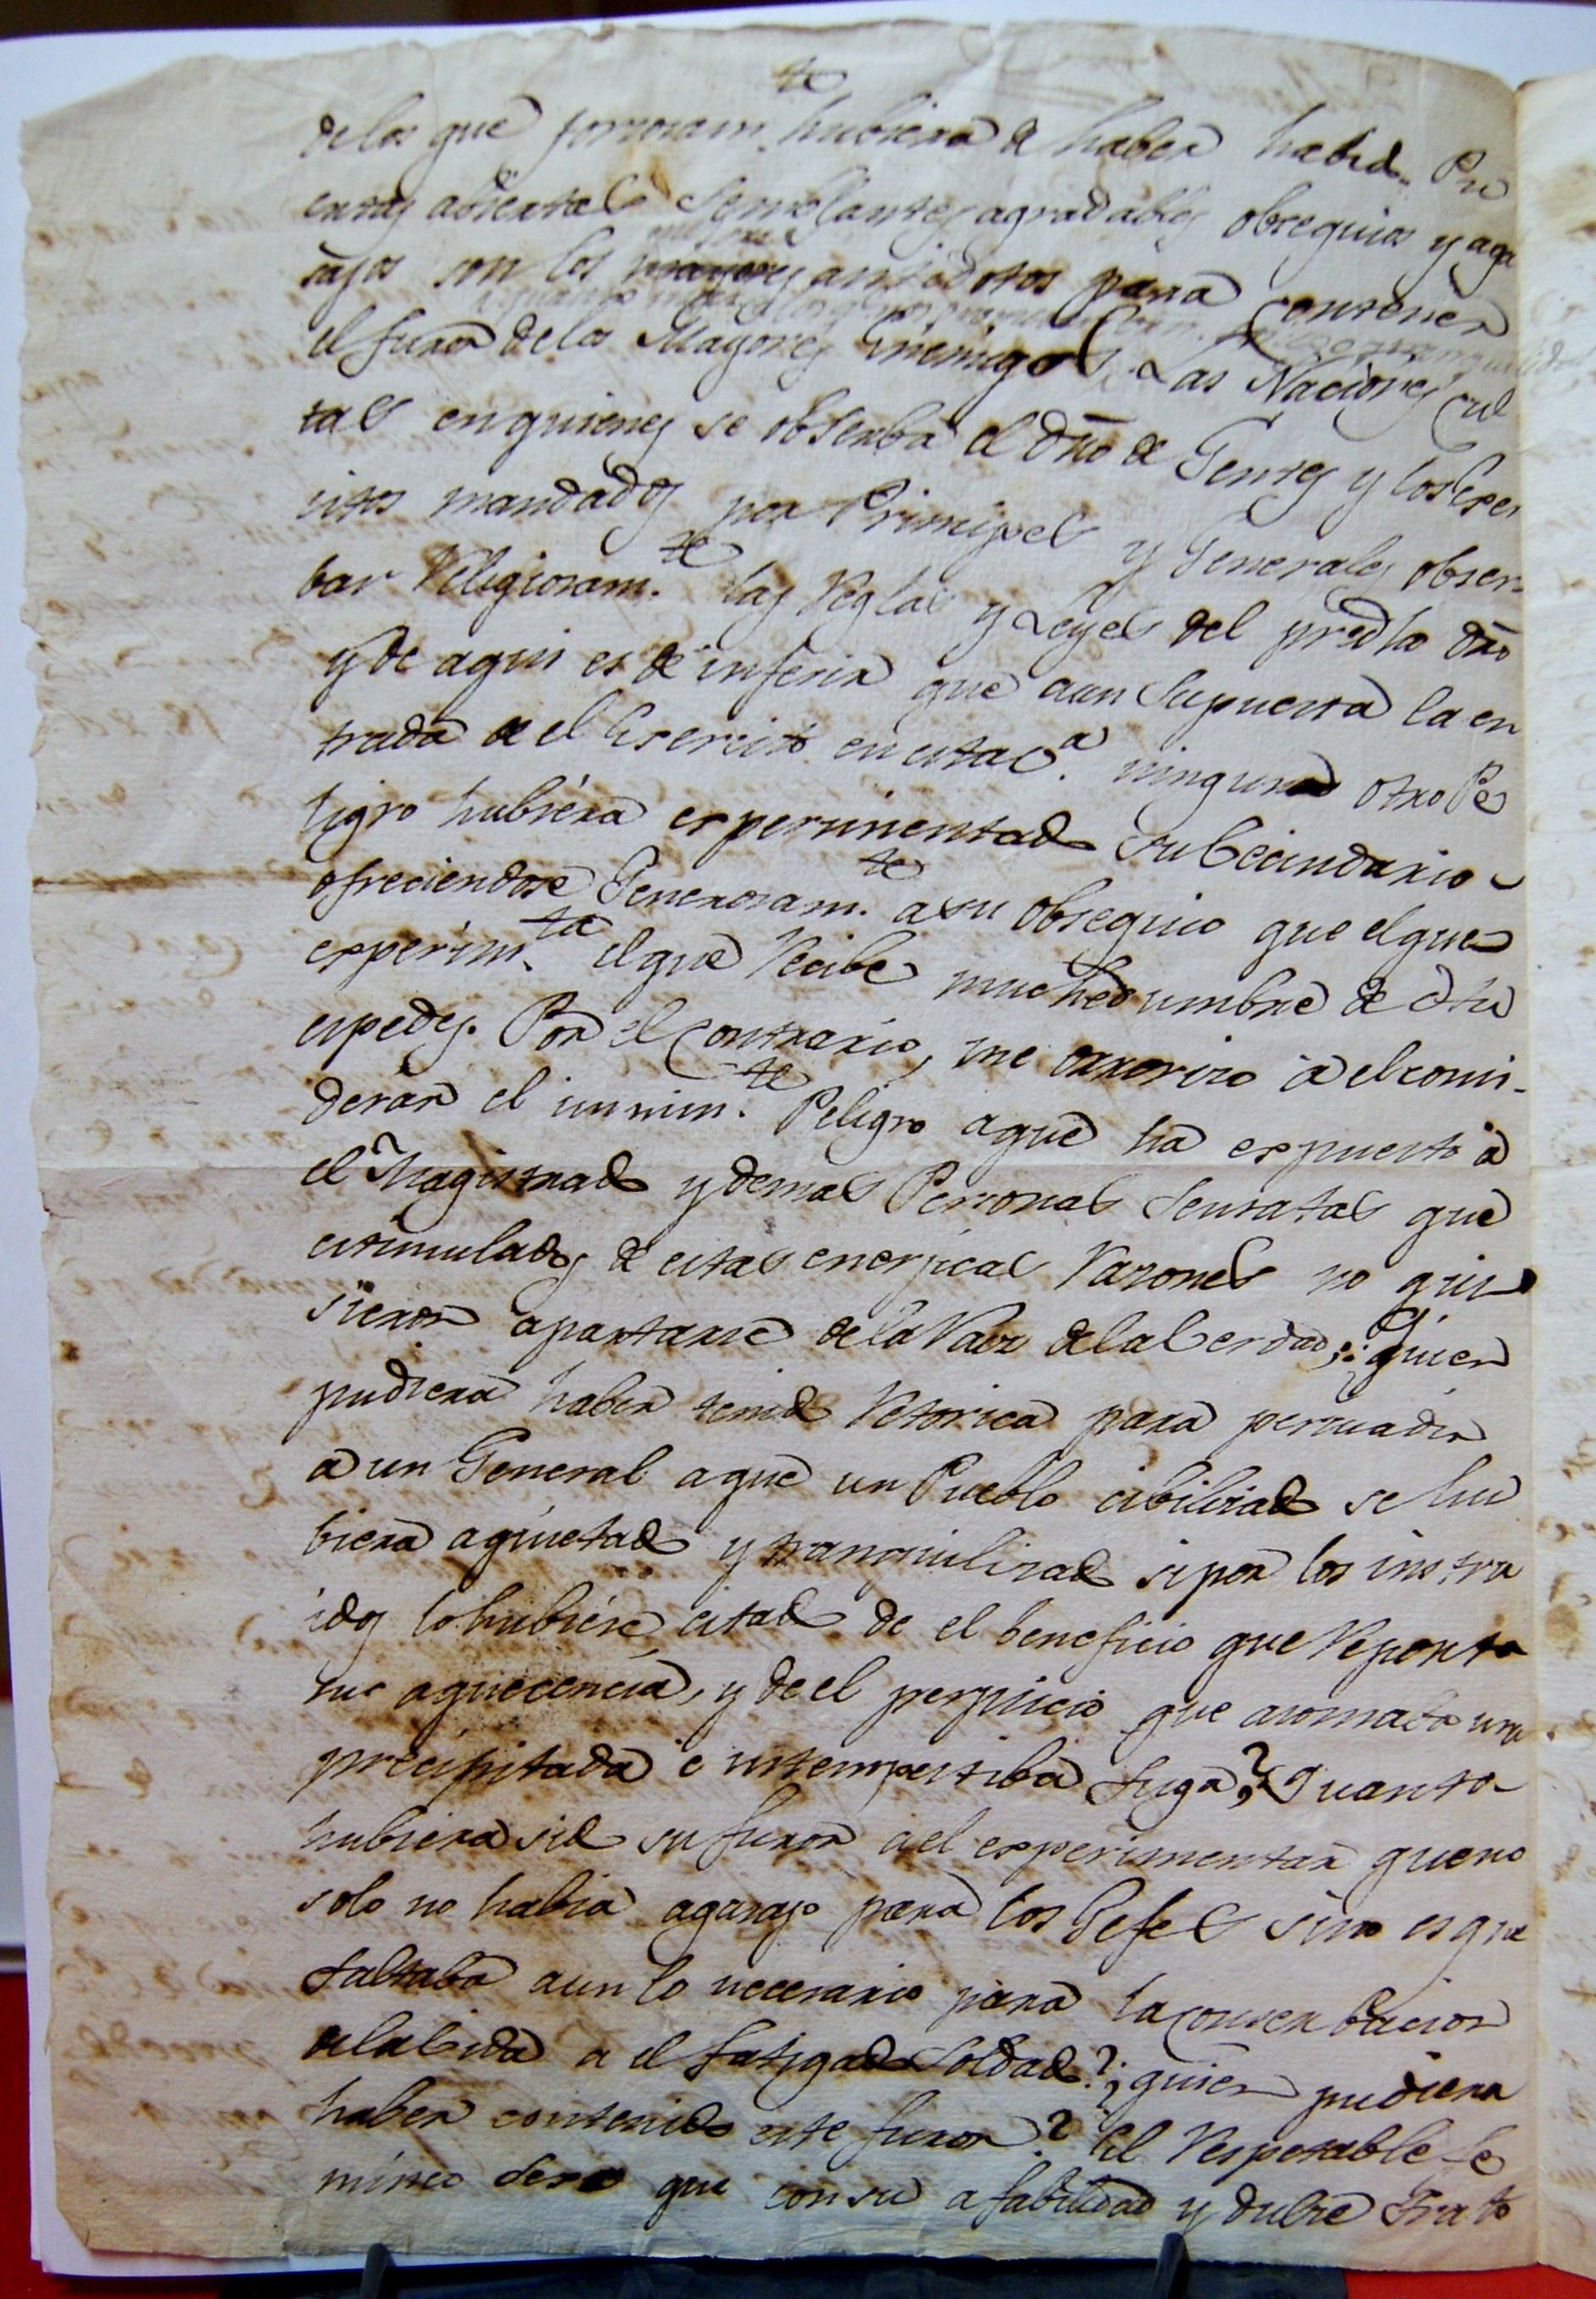 de los que forzosam.te hubiera de haber habido. Pu
ertas abiertas semblantes agradables obsequios y aga
sajos son los mayores antidotos para contener
el furor de los Mayores Enemigos. Las Naciones cul
tas en quienes se obserba el dro de Gentes y los Exer
citos mandados por Principes y Generales obser-
bar Religiosam.te las Reglas y Leyes del predho dro
y de aqui es de inferir que aun supuesta la en
trada de el Exercito en esta C.a ninguno otro Pe
ligro hubiera experimentado su Becindario
ofreciendose Generosam.te a su obsequio que el que
experim.ta el que Recibe muchedumbre de Hu
espedes. Por el contrario, me orrorizo a el consi-
derar el inmin.te Peligro a que ha expuesto a
el Magistrado y demas Personas sensatas que
estimulados de estas energicas Razones no qui
sieron apartarse de la Raiz de la Berdad; ¿Quien
pudiera haber tenido Retorica para persuadir
a un General a que un Pueblo cibilizado se hu
biera aquietado y tranquilizado si por los instru
idos lo hubiese estado de el beneficio que Reporta
su aquiecencia, y de el perjuicio que asomaba una
precipitada e intempestiba fuga? Quanto
hubiera sido su furor a el experimentar que no
solo no habia agasajo para los Gefes sino es que
faltaba aun lo necesario para la conserbacion
de la bida a el fatigado Soldado? ¿quien pudiera
haber contenido este furor? El Respetable fe
mineo sexo que con su afabilidad y dulce trato